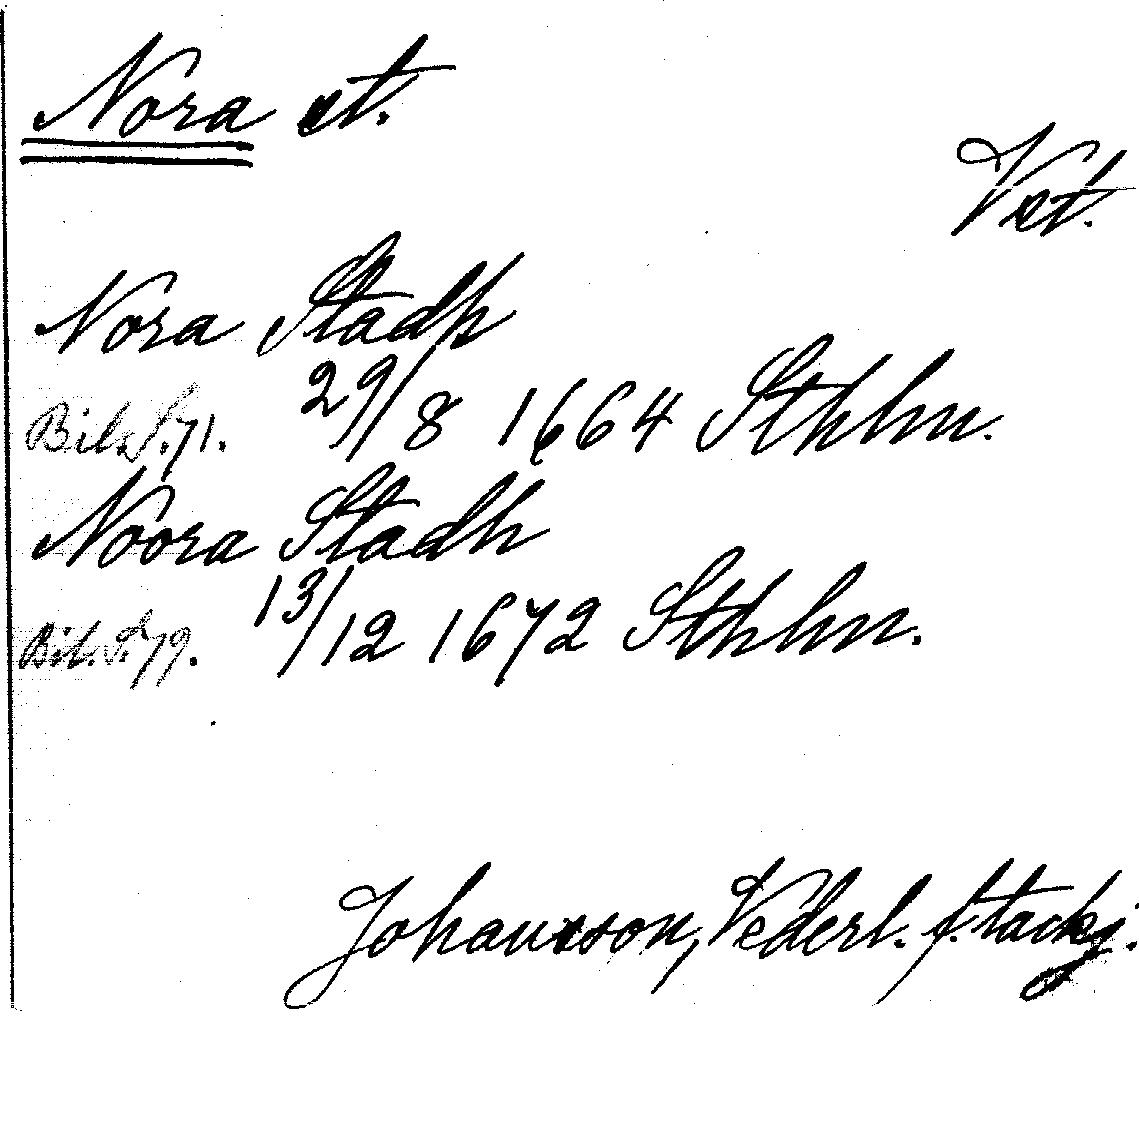 Nora st.
Vst.
Nora Stadh
29/8 1664 Sthlm.
Bil. S. 71.
Noora Stadh
13/12 1672 Sthlm.
Bil. S. 79.
Johansson, Vederl. f. tackj.